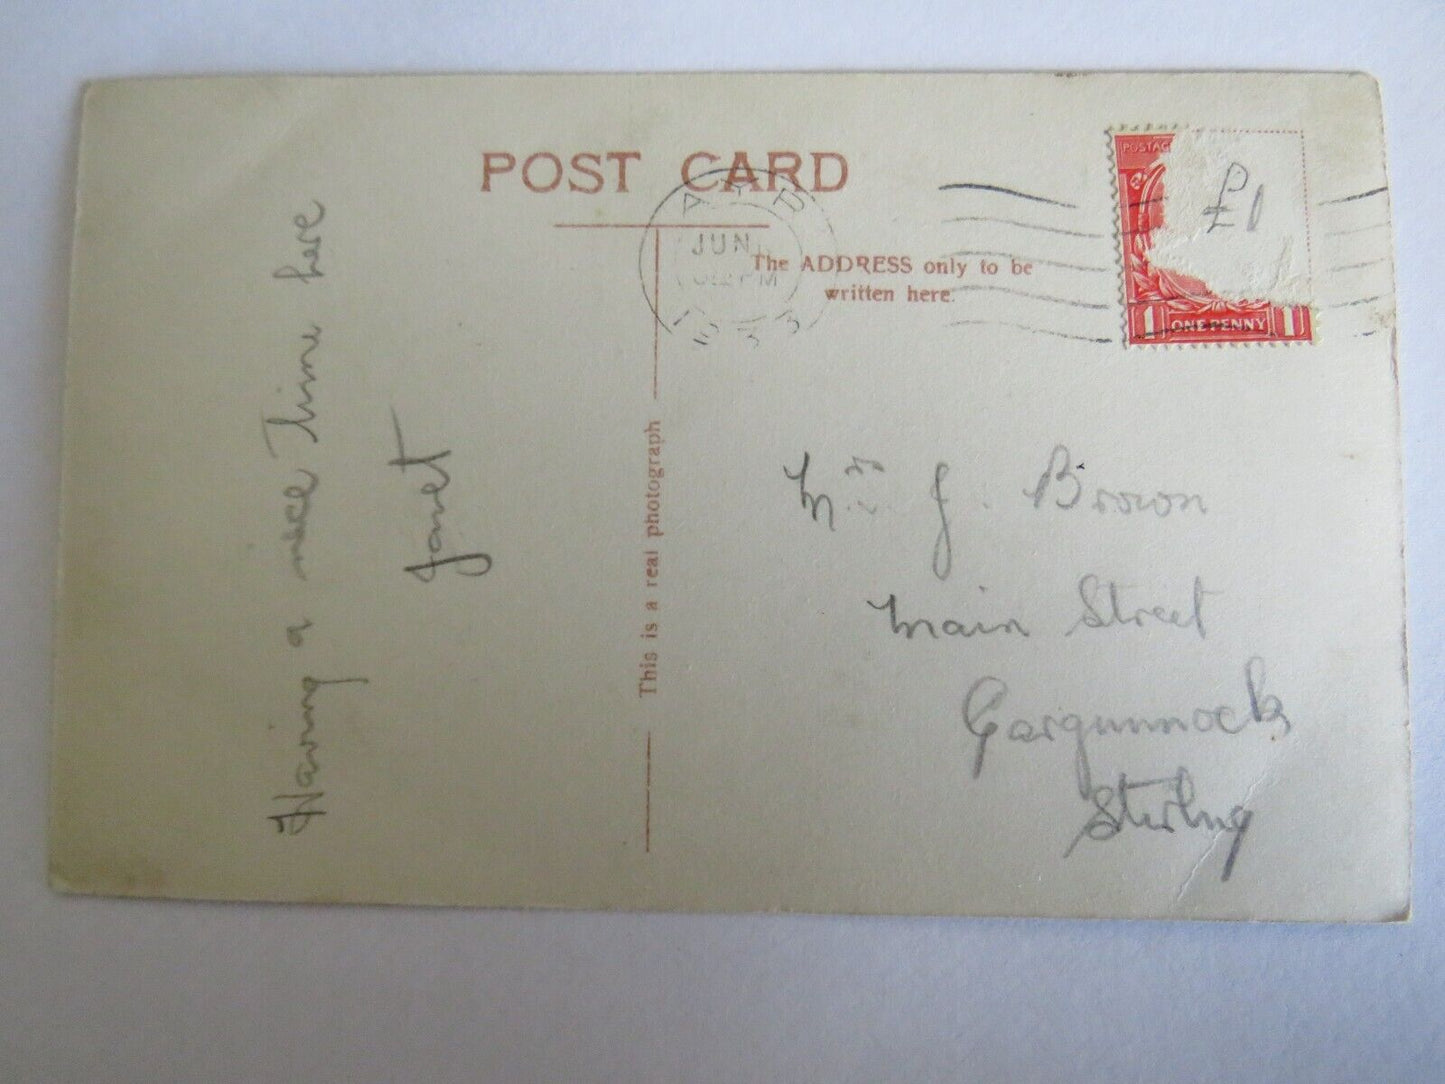 POST CARD
AYR
JUN
PM
1933
The ADDRESS only to be
written here.
POSTAG
£1
1 ONE PENNY 1
Having a nice time here
Janet
This is a real photograph
Mrs J. Brown
Main Street
Gargunnock
Stirling